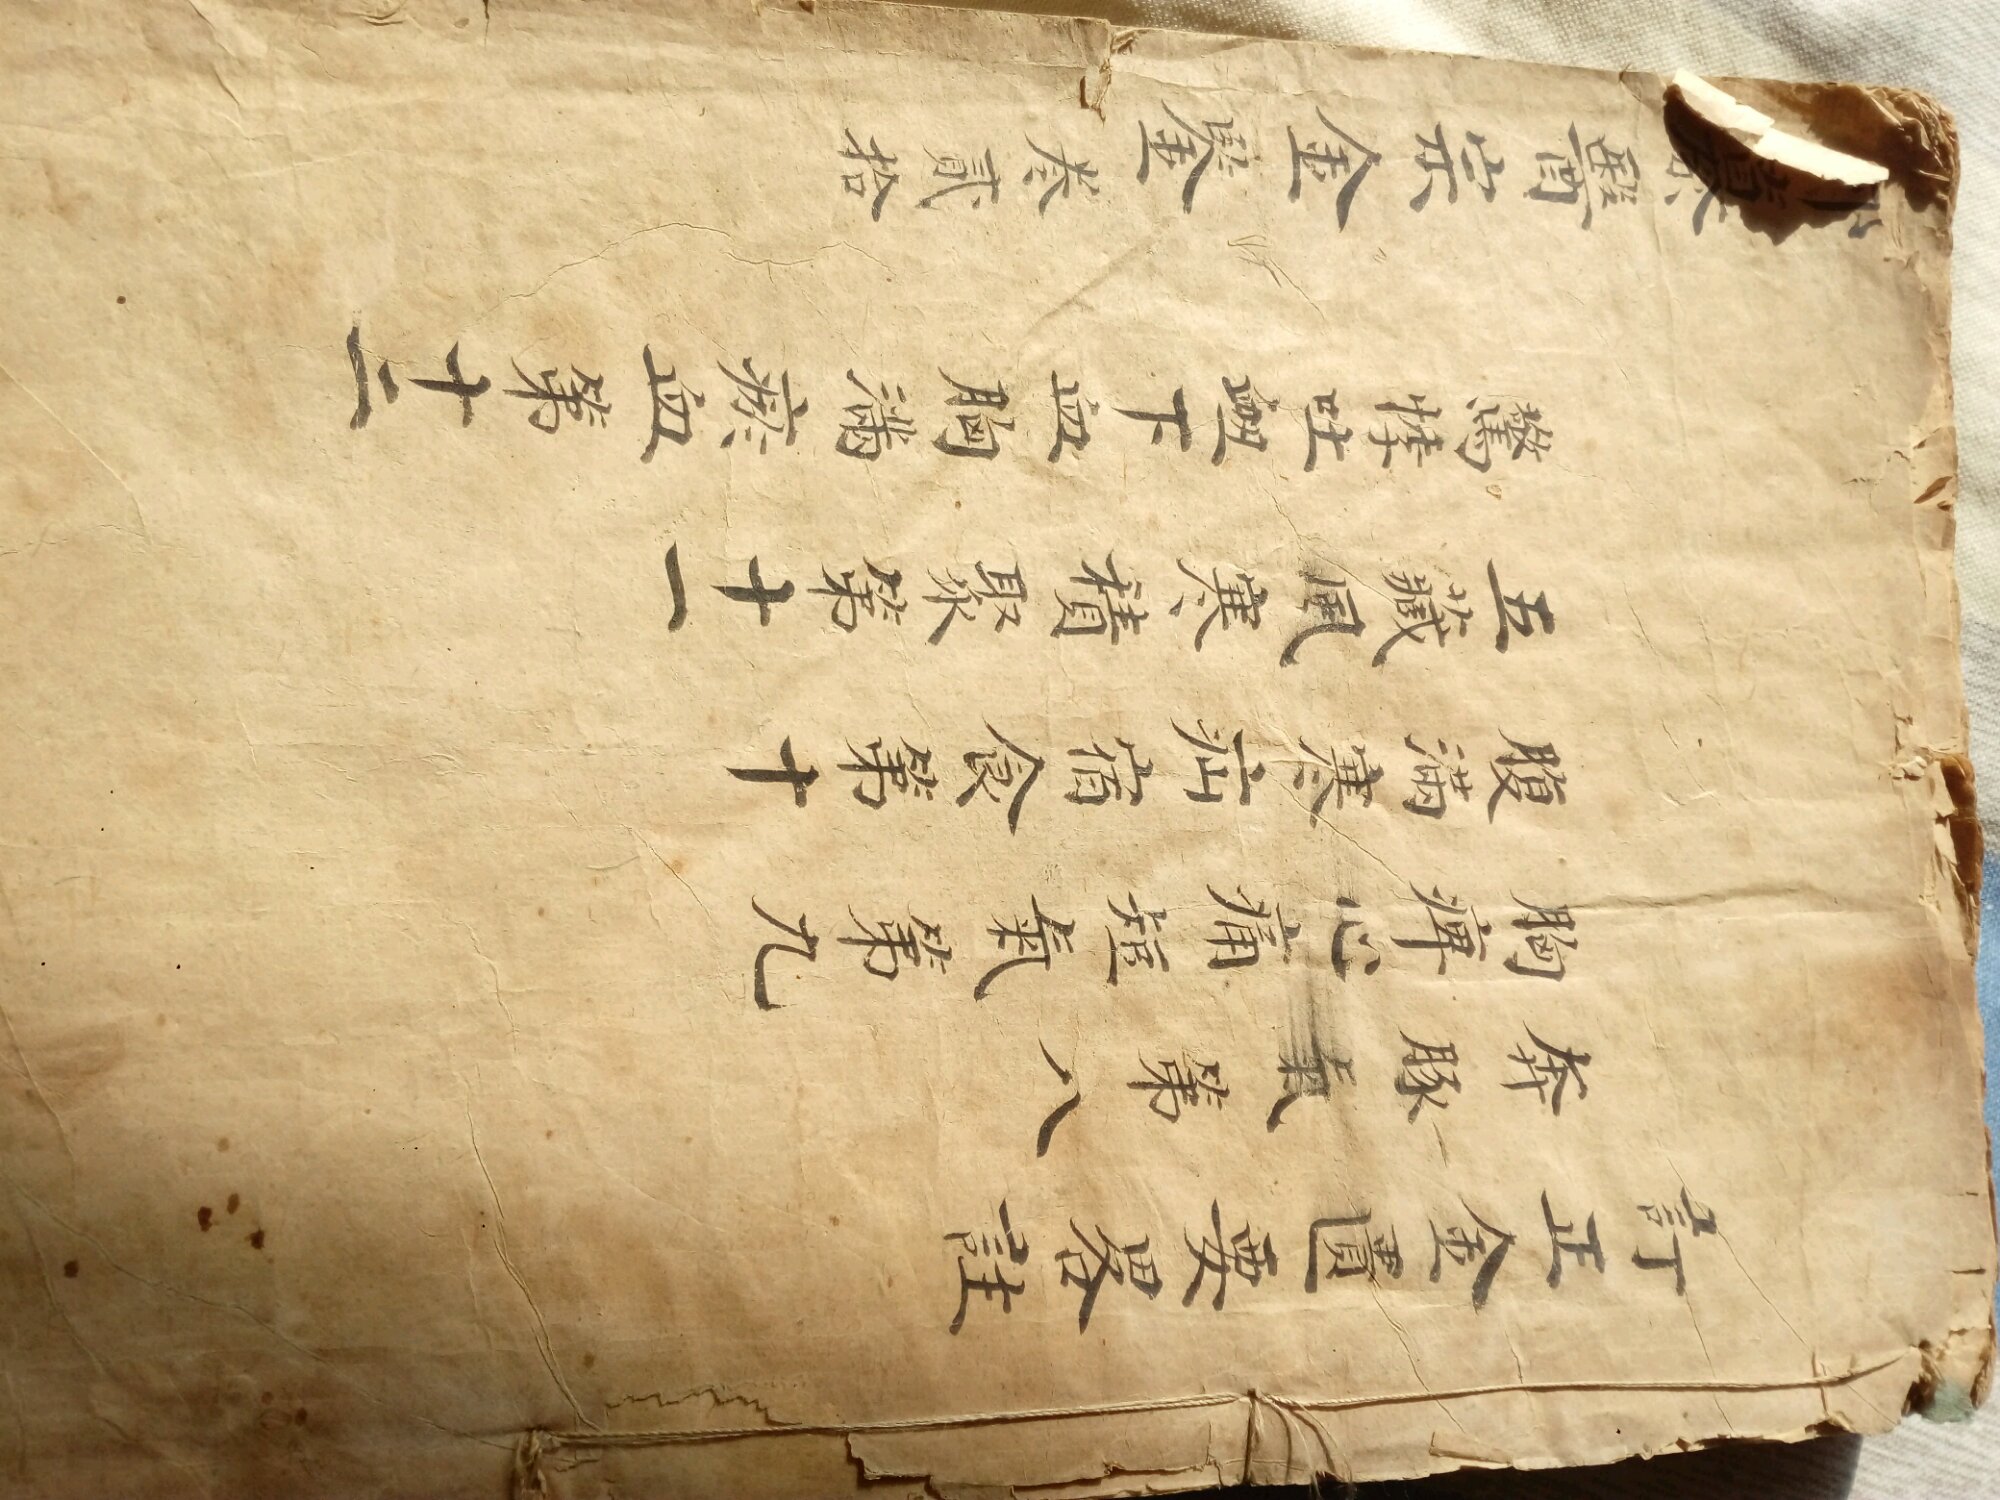 訂正金匱要畧註
奔豚氣第八
胸痺心痛短氣第九
腹滿寒疝宿食第十
五藏風寒積聚第十一
驚悸吐衄下血胸滿瘀血第十二
纂醫宗金鋻卷貳拾